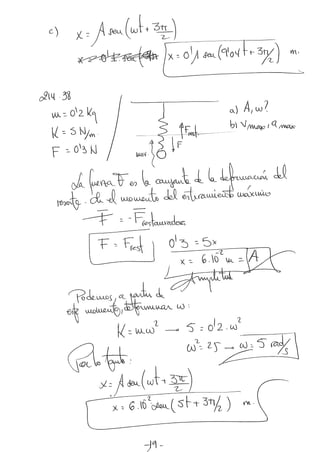 c) x = A sen (ωt + 3π/2)
x = 0'1 sen (9'04t + 3π/2) m.
214. 38
m = 0'2 Kg
K = 5 N/m
F = 0'3 N
a) A, ω?
b) v max, a max
F rest
F
La fuerza F es la causante de la deformación del
resorte. En el momento del estiramiento máximo
F = -F restauradora
F = F rest
0'3 = 5x
x = 6·10⁻² m = A
Amplitud
Podemos, a partir de
este momento, determinar ω:
K = mω² → 5 = 0'2·ω²
ω² = 25 → ω = 5 rad/s
Por lo tanto:
x = A sen (ωt + 3π/2)
x = 6·10⁻² sen (5t + 3π/2) m.
-19-